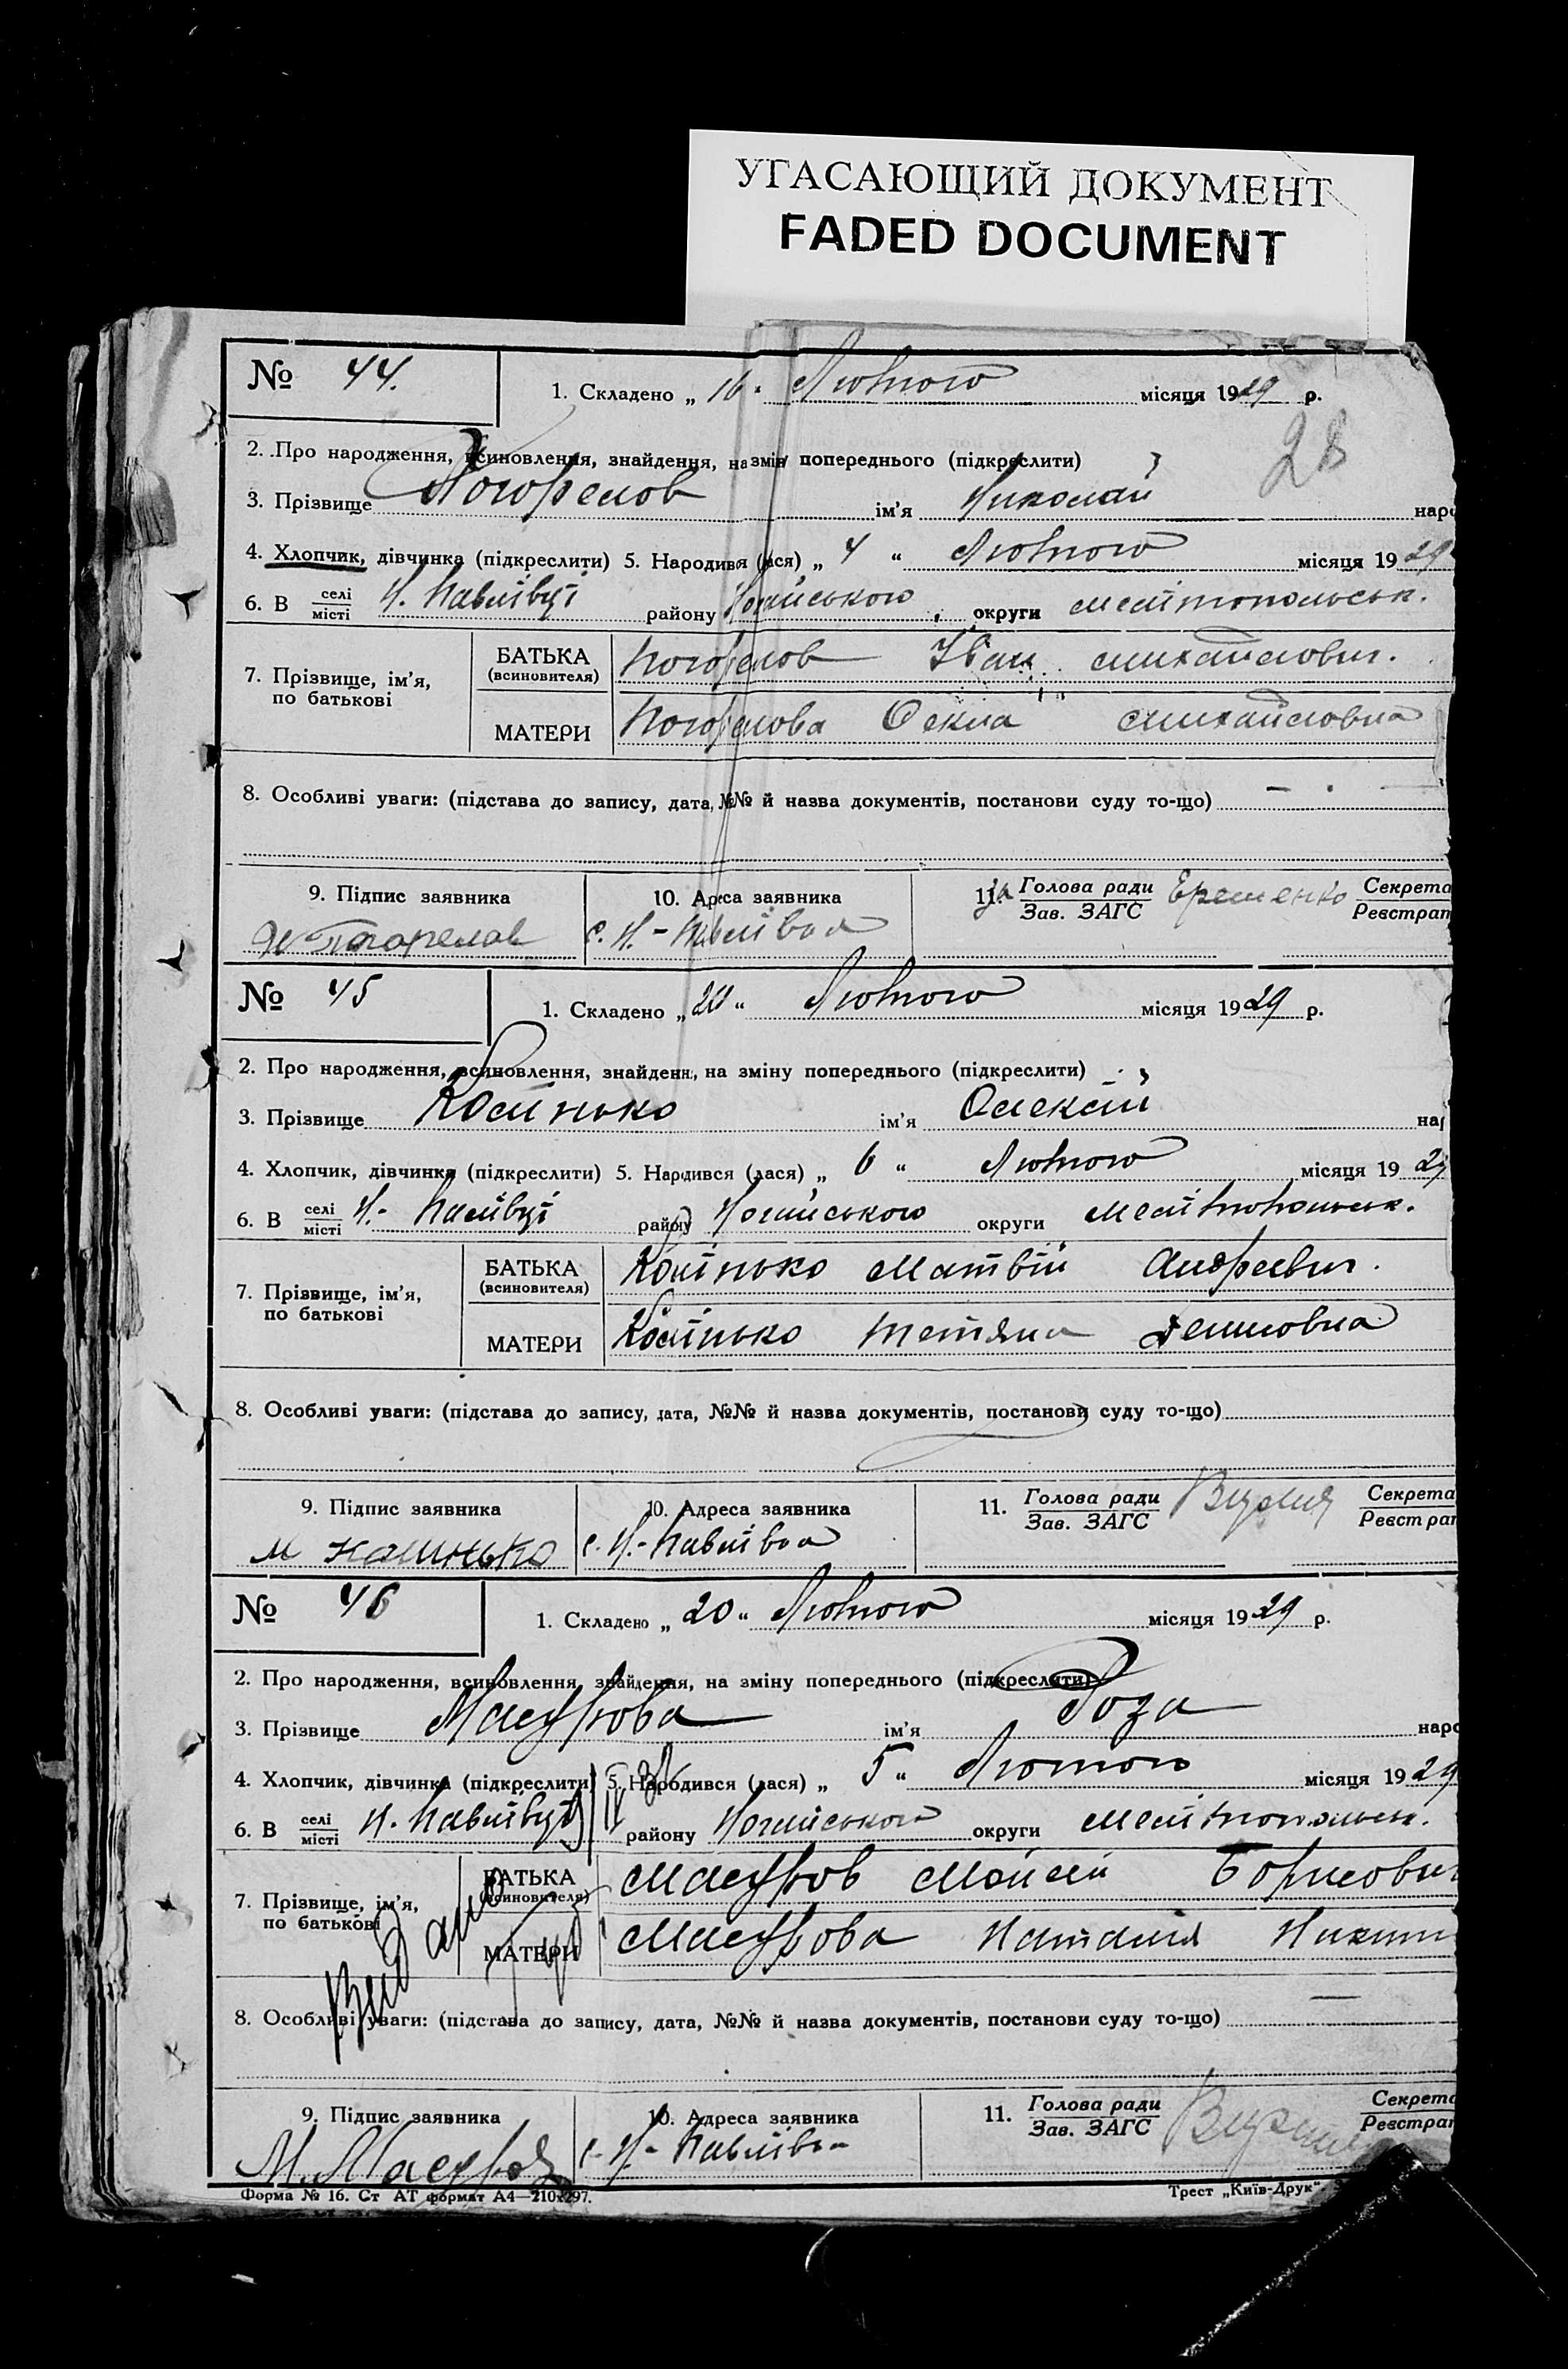 УГАСАЮЩИЙ ДОКУМЕНТ
FADED DOCUMENT
№ 44.
1. Складено „ 16 " Лютого місяця 1929 р.
28
2. Про народження, всиновлення, знайдення, на зміну попереднього (підкреслити)
3. Прізвище Погорелов ім'я Николай наро
4. Хлопчик, дівчинка (підкреслити) 5. Народився (лася) „ 4 “ Лютого місяця 1929
6. В селі/місті Н. Павлівці району Ногайського округи Мелітопольськ.
7. Прізвище, ім'я, по батькові
БАТЬКА (всиновителя) Погорелов Іван Михайлович.
МАТЕРИ Погорелова Фекла Михайловна
8. Особливі уваги: (підстава до запису, дата, №№ й назва документів, постанови суду то-що) —
9. Підпис заявника
10. Адреса заявника
11. Голова ради/Зав. ЗАГС Еременко Секрета/Реєстрат
Погорелов с. Н.-Павлівка
№ 45
1. Складено „ 20 “ Лютого місяця 1929 р.
2. Про народження, всиновлення, знайдення, на зміну попереднього (підкреслити)
3. Прізвище Калінько ім'я Олексій на
4. Хлопчик, дівчинка (підкреслити) 5. Народився (лася) „ 6 “ Лютого місяця 1929
6. В селі/місті Н.- Павлівці району Ногайського округи Мелітопольськ.
7. Прізвище, ім'я, по батькові
БАТЬКА (всиновителя) Калінько Матвій Андреевич.
МАТЕРИ Калінько Тетяна
8. Особливі уваги: (підстава до запису, дата, №№ й назва документів, постанови суду то-що)
9. Підпис заявника
10. Адреса заявника
11. Голова ради/Зав. ЗАГС Секрета/Реєстрат
М Калинько с. Н.-Павлівка
№ 46
1. Складено „ 20 “ Лютого місяця 1929 р.
2. Про народження, всиновлення, знайдення, на зміну попереднього (підкреслити)
3. Прізвище ім'я Роза наро
4. Хлопчик, дівчинка (підкреслити) 5. Народився (лася) „ 5 “ Лютого місяця 1929
6. В селі/місті Н. Павлівці району Ногайського округи Мелітопольськ.
7. Прізвище, ім'я, по батькові
БАТЬКА (всиновителя) Мойсей Борисович
МАТЕРИ Наталія Никит
8. Особливі уваги: (підстава до запису, дата, №№ й назва документів, постанови суду то-що) —
9. Підпис заявника
10. Адреса заявника
11. Голова ради/Зав. ЗАГС Секрета/Реєстрат
с. Н.- Павлівка
Форма № 16. Ст АТ формат А4—210×297.
Трест „Київ-Друк“